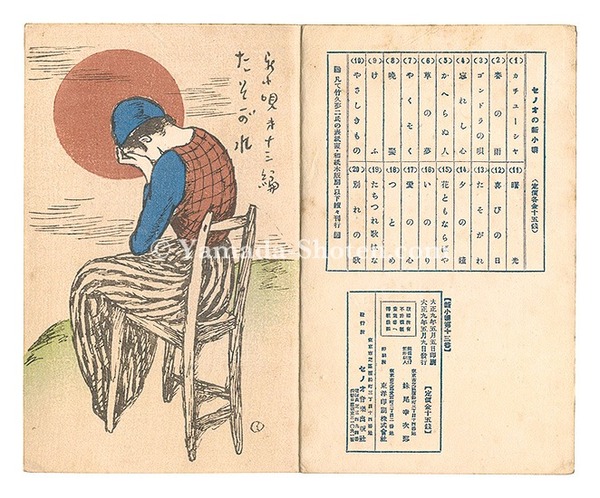 新小唄才十三編
たそがれ
© Yamada Shoten.com
セノオの新小唄
(定價各金十五錢)
(1) カチューシャ
(2) 春の雨
(3) ゴンドラの唄
(4) 忘れし心
(5) かへらぬ人
(6) 草の夢
(7) やくそく
(8) 晩鐘
(9) けふ
(10) やさしきもの
(11) 曙光
(12) 喜びの日
(13) たそがれ
(14) 夕の鐘
(15) 花ともならや
(16) いのり
(17) 愛の心
(18) つとめ
(19) たちつれ歌な
(20) 別れの歌
【新小唄第十三番】
大正九年五月五日印刷
大正九年五月九日發行
【定價金十五錢】
妹尾幸次郎
東洋印刷株式會社
發行所
セノオ音樂出版社